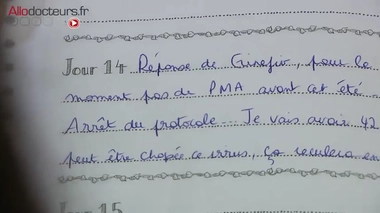 Allodocteurs.fr
Jour 14 Réponse de Ginefiv, pour le
moment pas de PMA avant cet été
Arrêt du protocole... Je vais avoir 42
peut être chopée ce virus, ça reculera en
Jour 15